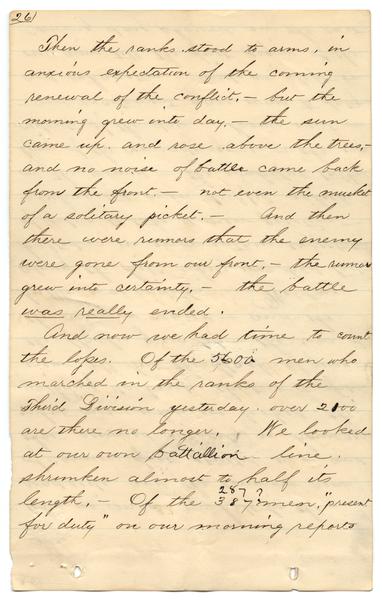 26
Then the ranks stood to arms, in
anxious expectation of the coming
renewal of the conflict, – but the
morning grew into day, – the sun
came up and rose above the trees, –
and no noise of battle came back
from the front, – not even the musket
of a solitary picket. – And then
there were rumors that the enemy
were gone from our front, – the rumors
grew into certainty, – the battle
was really ended.
And now we had time to count
the loses. Of the 5600 men who
marched in the ranks of the
Third Division yesterday over 2100
are there no longer. We looked
at our own battallion line,
shrunken almost to half its
length. – Of the 387 men, "present
287?
for duty" on our morning reports